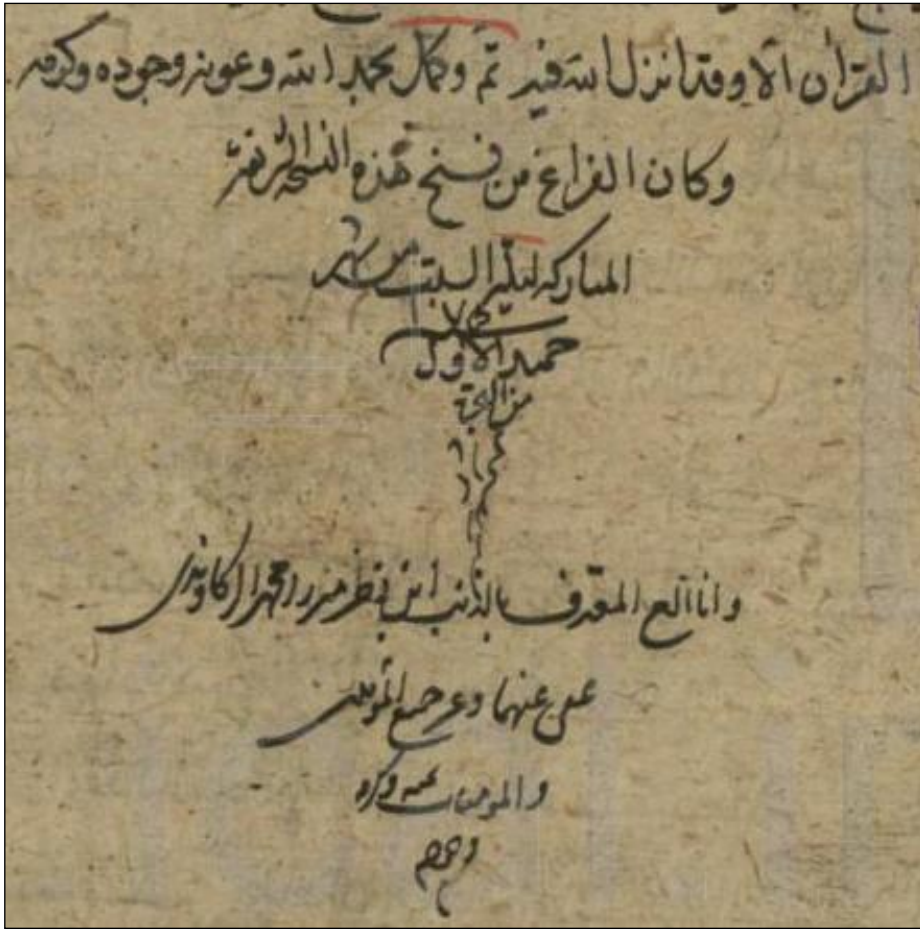 القرأن الا وقد انزل الله فيه تم وكمل بحمد الله وعونه وجوده وكرمه
وكان الفراغ من نسخ هذه النسخة الشريفة
المباركة ليلة السبت من شهر
جميد الاول
من الهجرة
وانا المعترف بالذنب ابن
عفى عنهما وعن جميع المؤمنين
والمؤمنات بمنه وكرمه